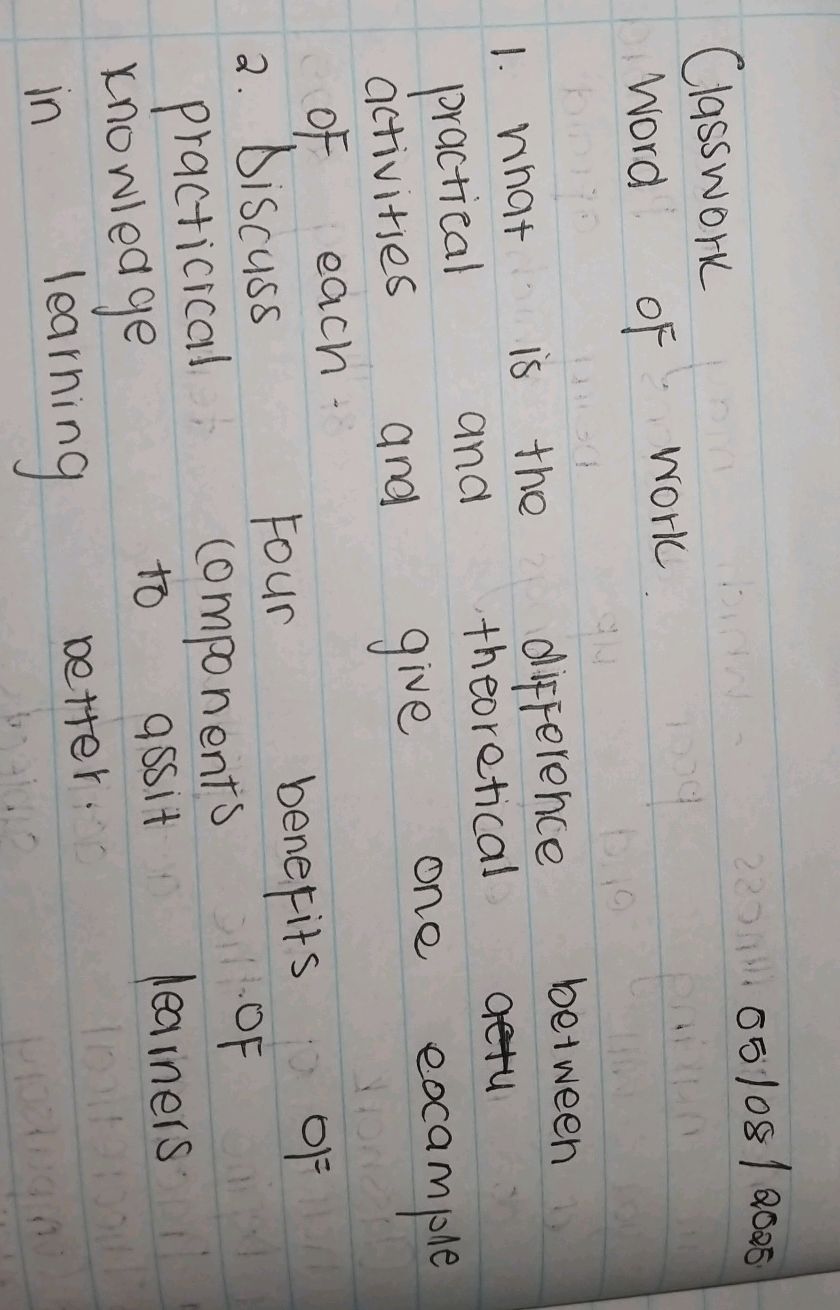 Classwork 05/08/2025
Word of work.
1. What is the difference between
practical and theoretical actu
activities and give one example
of each.
2. Discuss four benefits of
practicical components of
knowledge to assit learners
in learning better.